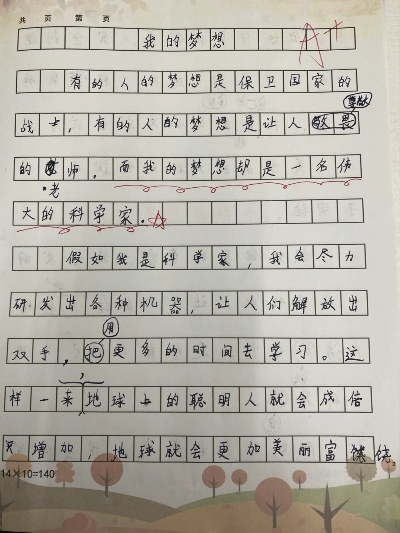 共 页 第 页
我的梦想 A+
有的人的梦想是保卫国家的
尊敬
战士，有的人的梦想是让人敬畏
的师，而我的梦想却是一名伟
老
大的科学家。
假如我是科学家，我会尽力
研发出各种机器，让人们解放出
用
双手，把更多的时间去学习。这
样一来，地球上的聪明人就会成倍
增加，地球就会更加美丽富饶。
14×10=140